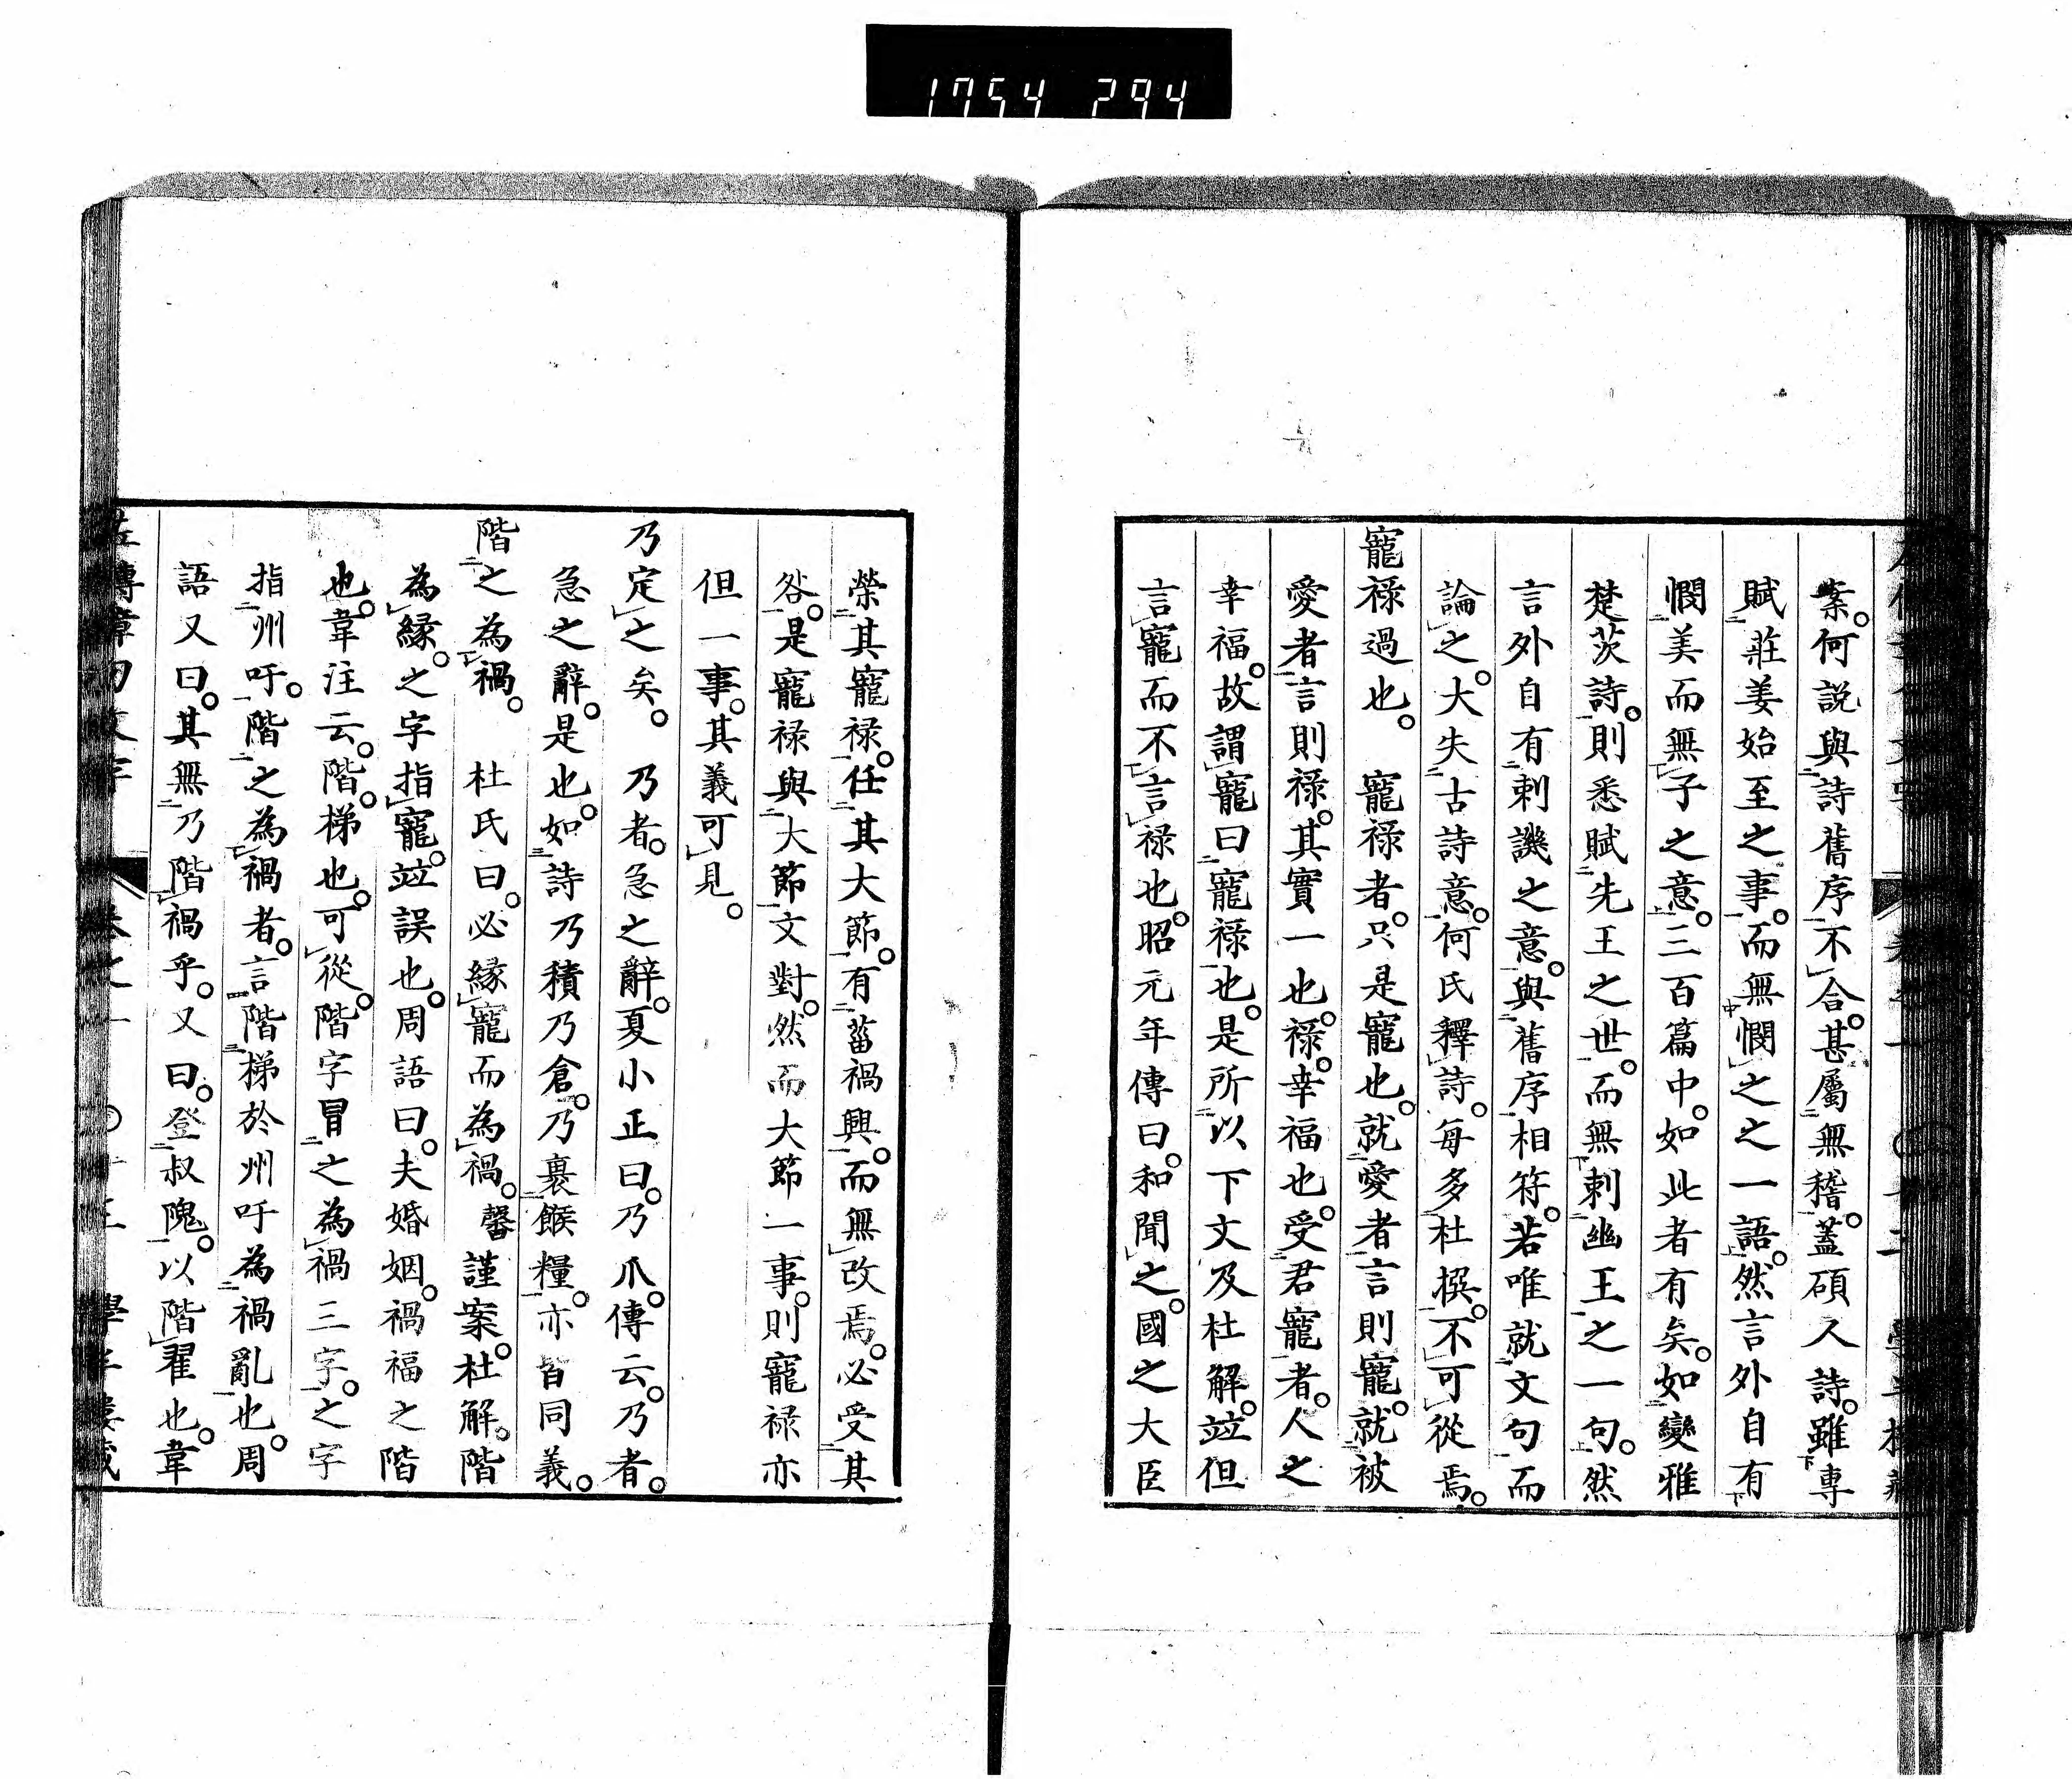 1754 294
案。何説與詩舊序不合。甚屬無稽。蓋碩人詩。雖專
賦莊姜始至之事。而無憫之之一語。然言外自有
憫美而無子之意。三百篇中。如此者有矣。如變雅
楚茨詩。則悉賦先王之世。而無刺幽王之一句。然
言外自有刺譏之意。與舊序相符。若唯就文句而
論之。大失古詩意。何氏釋詩。每多杜撰。不可從焉。
寵禄過也。 寵禄者。只是寵也。就愛者言則寵。就被
愛者言則禄。其實一也。禄。幸福也。受君寵者。人之
幸福。故謂寵曰寵禄也。是所以下文及杜解。竝但
言寵而不言禄也。昭元年傳曰。和聞之。國之大臣
榮其寵禄。任其大節。有菑禍興。而無改焉。必受其
咎。是寵禄與大節文對。然而大節一事。則寵禄亦
但一事。其義可見。
乃定之矣。 乃者。急之辭。夏小正曰。乃爪。傳云。乃者。
急之辭。是也。如詩乃積乃倉。乃裹餱糧。亦皆同義。
階之為禍。 杜氏曰。必緣寵而為禍。馨謹案。杜解。階
為緣。之字指寵。竝誤也。周語曰。夫婚姻。禍福之階
也。韋注云。階。梯也。可從。階字冒之為禍三字。之字
指州吁。階之為禍者。言階梯於州吁為禍亂也。周
語又曰。其無乃階禍乎。又曰。登叔隗。以階翟也。韋